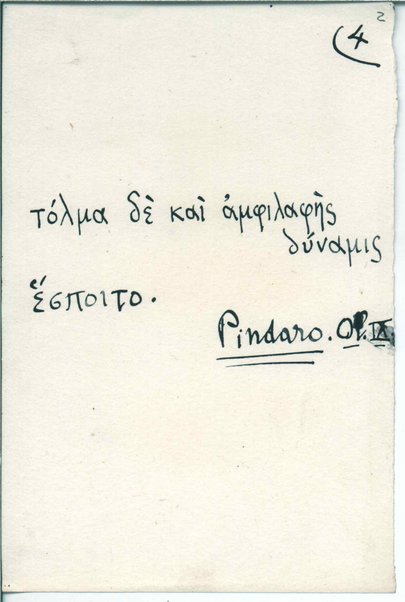 2
(4
τόλμα δὲ καὶ ἀμφιλαφὴς
δύναμις
ἕσποιτο.
Pindaro. Ol. IX